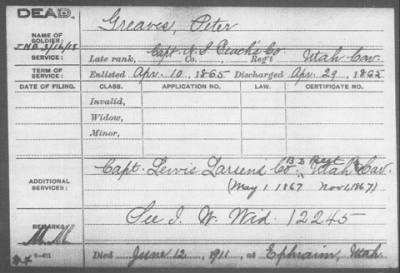 DEAD.
NAME OF SOLDIER:
Greaves, Peter
JNB 3/16/18
SERVICE:
Capt. N. S. Beach's Co
Late rank, Co. Reg't Utah Cav.
TERM OF SERVICE:
Enlisted Apr. 10, 1865 Discharged Apr. 29, 1865
DATE OF FILING. CLASS. APPLICATION NO. LAW. CERTIFICATE NO.
Invalid,
Widow,
Minor,
ADDITIONAL SERVICES:
Capt. Lewis Larsens Co. Utah Cav.
(May 1 1867 Nov 1, 1867)
See I. W. Wid. 12245
REMARKS:
Died June 12, 1911, at Ephraim, Utah